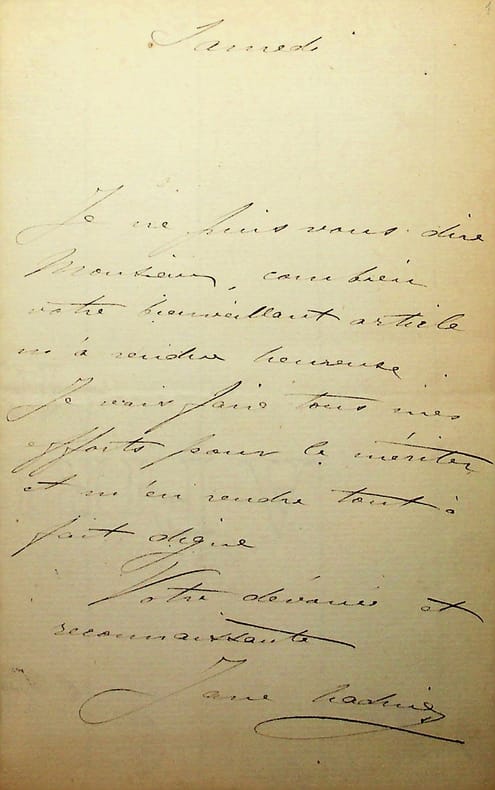 Samedi
Je ne puis vous dire
Monsieur, combien
votre bienveillant article
m'a rendue heureuse
Je vais faire tous mes
efforts pour le mériter
et m'en rendre tout à
fait digne
Votre dévouée et
reconnaissante
Jane Hading